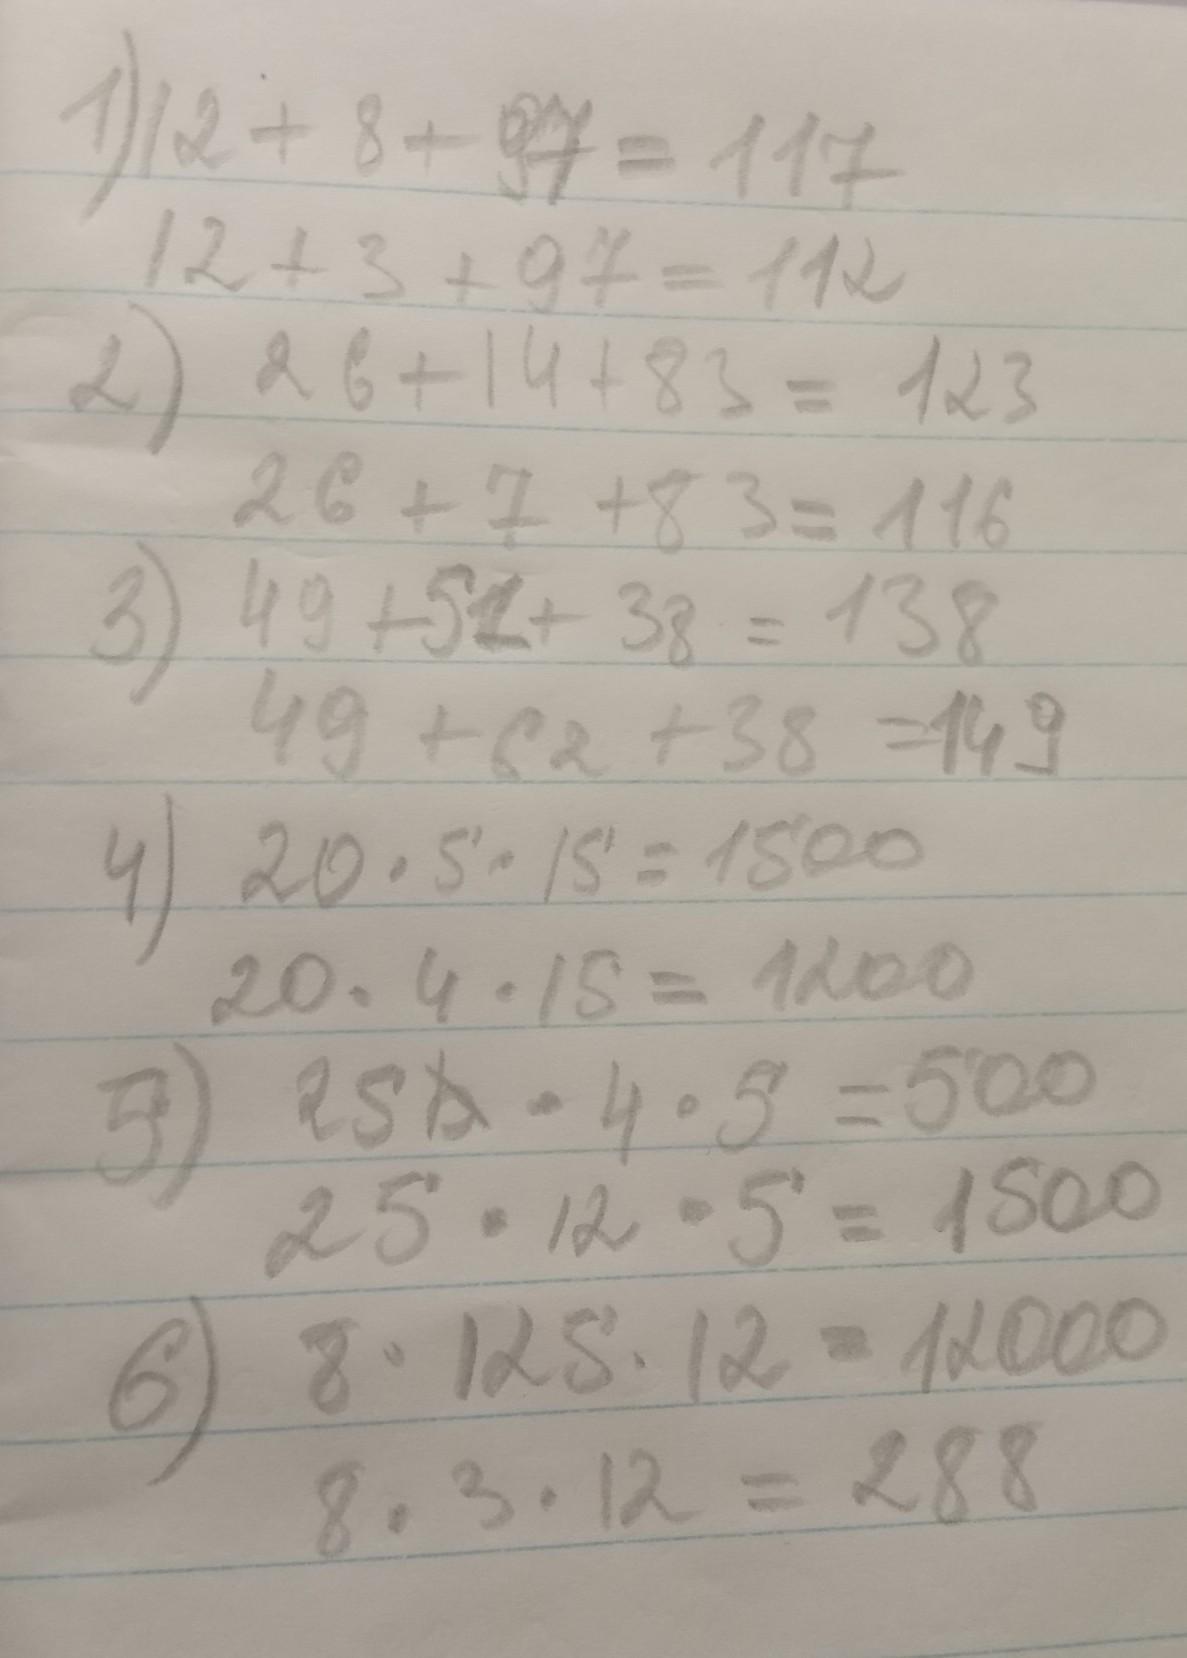 1) 12 + 8 + 97 = 117
12 + 3 + 97 = 112
2) 26 + 14 + 83 = 123
26 + 7 + 83 = 116
3) 49 + 51 + 38 = 138
49 + 62 + 38 = 149
4) 20 · 5 · 15 = 1500
20 · 4 · 15 = 1200
5) 25 · 4 · 5 = 500
25 · 12 · 5 = 1500
6) 8 · 125 · 12 = 12000
8 · 3 · 12 = 288